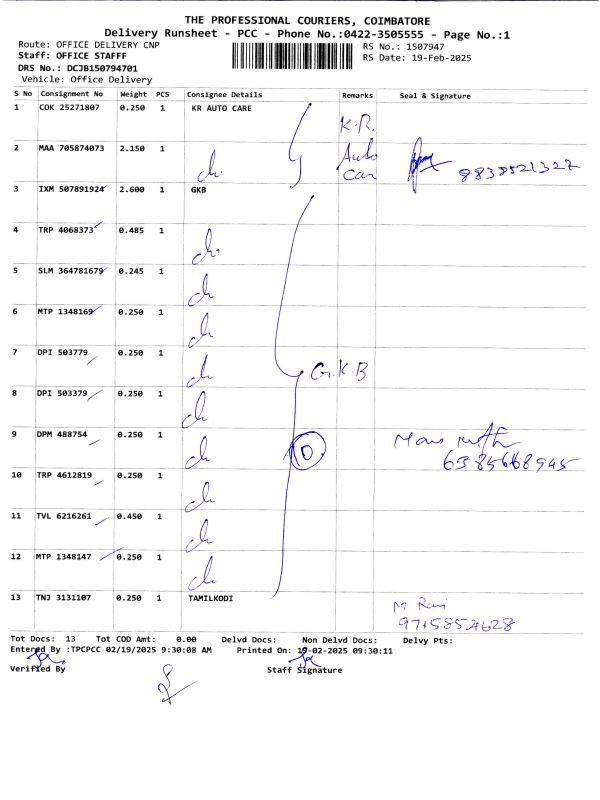 THE PROFESSIONAL COURIERS, COIMBATORE
Delivery Runsheet - PCC - Phone No.:0422-3505555 - Page No.:1
Route: OFFICE DELIVERY CNP
RS No.: 1507947
Staff: OFFICE STAFFF
RS Date: 19-Feb-2025
DRS No.: DCJB150794701
Vehicle: Office Delivery
S No Consignment No Weight PCS Consignee Details Remarks Seal & Signature
1 COK 25271807 0.250 1 KR AUTO CARE
K.R.
2 MAA 705874073 2.150 1 ch. Auto
Car
3 IXM 507891924 2.600 1 GKB
4 TRP 4068373 0.485 1 ch.
5 SLM 364781679 0.245 1 ch
6 MTP 1348169 0.250 1 ch
7 DPI 503779 0.250 1 ch G.K.B
8 DPI 503379 0.250 1 ch
9 DPM 488754 0.250 1 ch D
6385668945
10 TRP 4612819 0.250 1 ch
11 TVL 6216261 0.450 1 ch
12 MTP 1348147 0.250 1 ch
13 TNJ 3131107 0.250 1 TAMILKODI
M Ravi
Tot Docs: 13 Tot COD Amt: 0.00 Delvd Docs: Non Delvd Docs: Delvy Pts:
Entered By :TPCPCC 02/19/2025 9:30:08 AM Printed On: 19-02-2025 09:30:11
Verified By Staff Signature